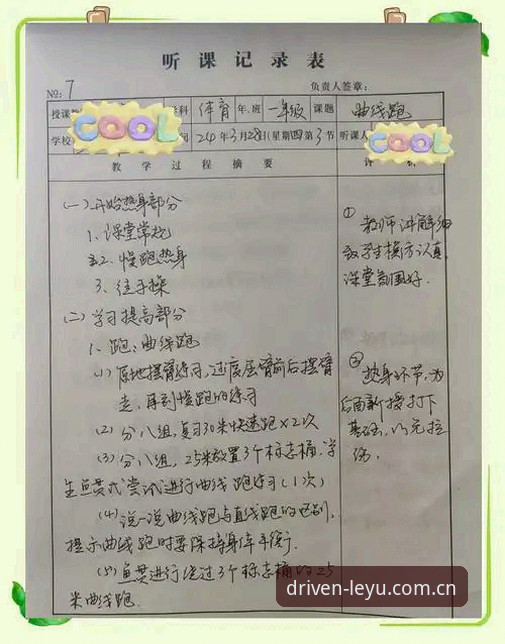 听课记录表
№: 7
负责人签章:
授课
COOL
学科 体育 年、班 一年级 课题 曲线跑
学校
间 24年3月28日(星期四第3节 听课人
COOL
教学过程摘要
评析
(一)开始热身部分
1、课堂常规
2、慢跑热身
3、徒手操
(二)学习提高部分
1、跑:曲线跑
(1)原地摆臂练习,过度屈臂前后摆臂
走,再到慢跑的练习
(2)分八组,复习30米快速跑×2次
(3)分八组,25米放置3个标志桶,学
生鱼贯式尝试进行曲线跑练习(1次)
(4)说一说曲线跑与直线跑的区别,
提示曲线跑时要保持身体平衡。
(5)鱼贯进行绕过3个标志桶的25
米曲线跑.
① 教师讲解细
致学生模仿认真,
课堂氛围好.
② 热身环节,为
后面新授打下
基础,以免拉
伤.
driven-leyu.com.cn